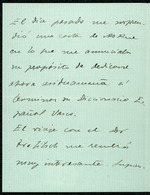 El día pasado me sorpren-
dió una carta de
en la que me anunciaba
su propósito de dedicarse
ahora activamente á
su Diccionario Es-
pañol Vasco.
El viaje con el Dr
me resultó
muy interesante.